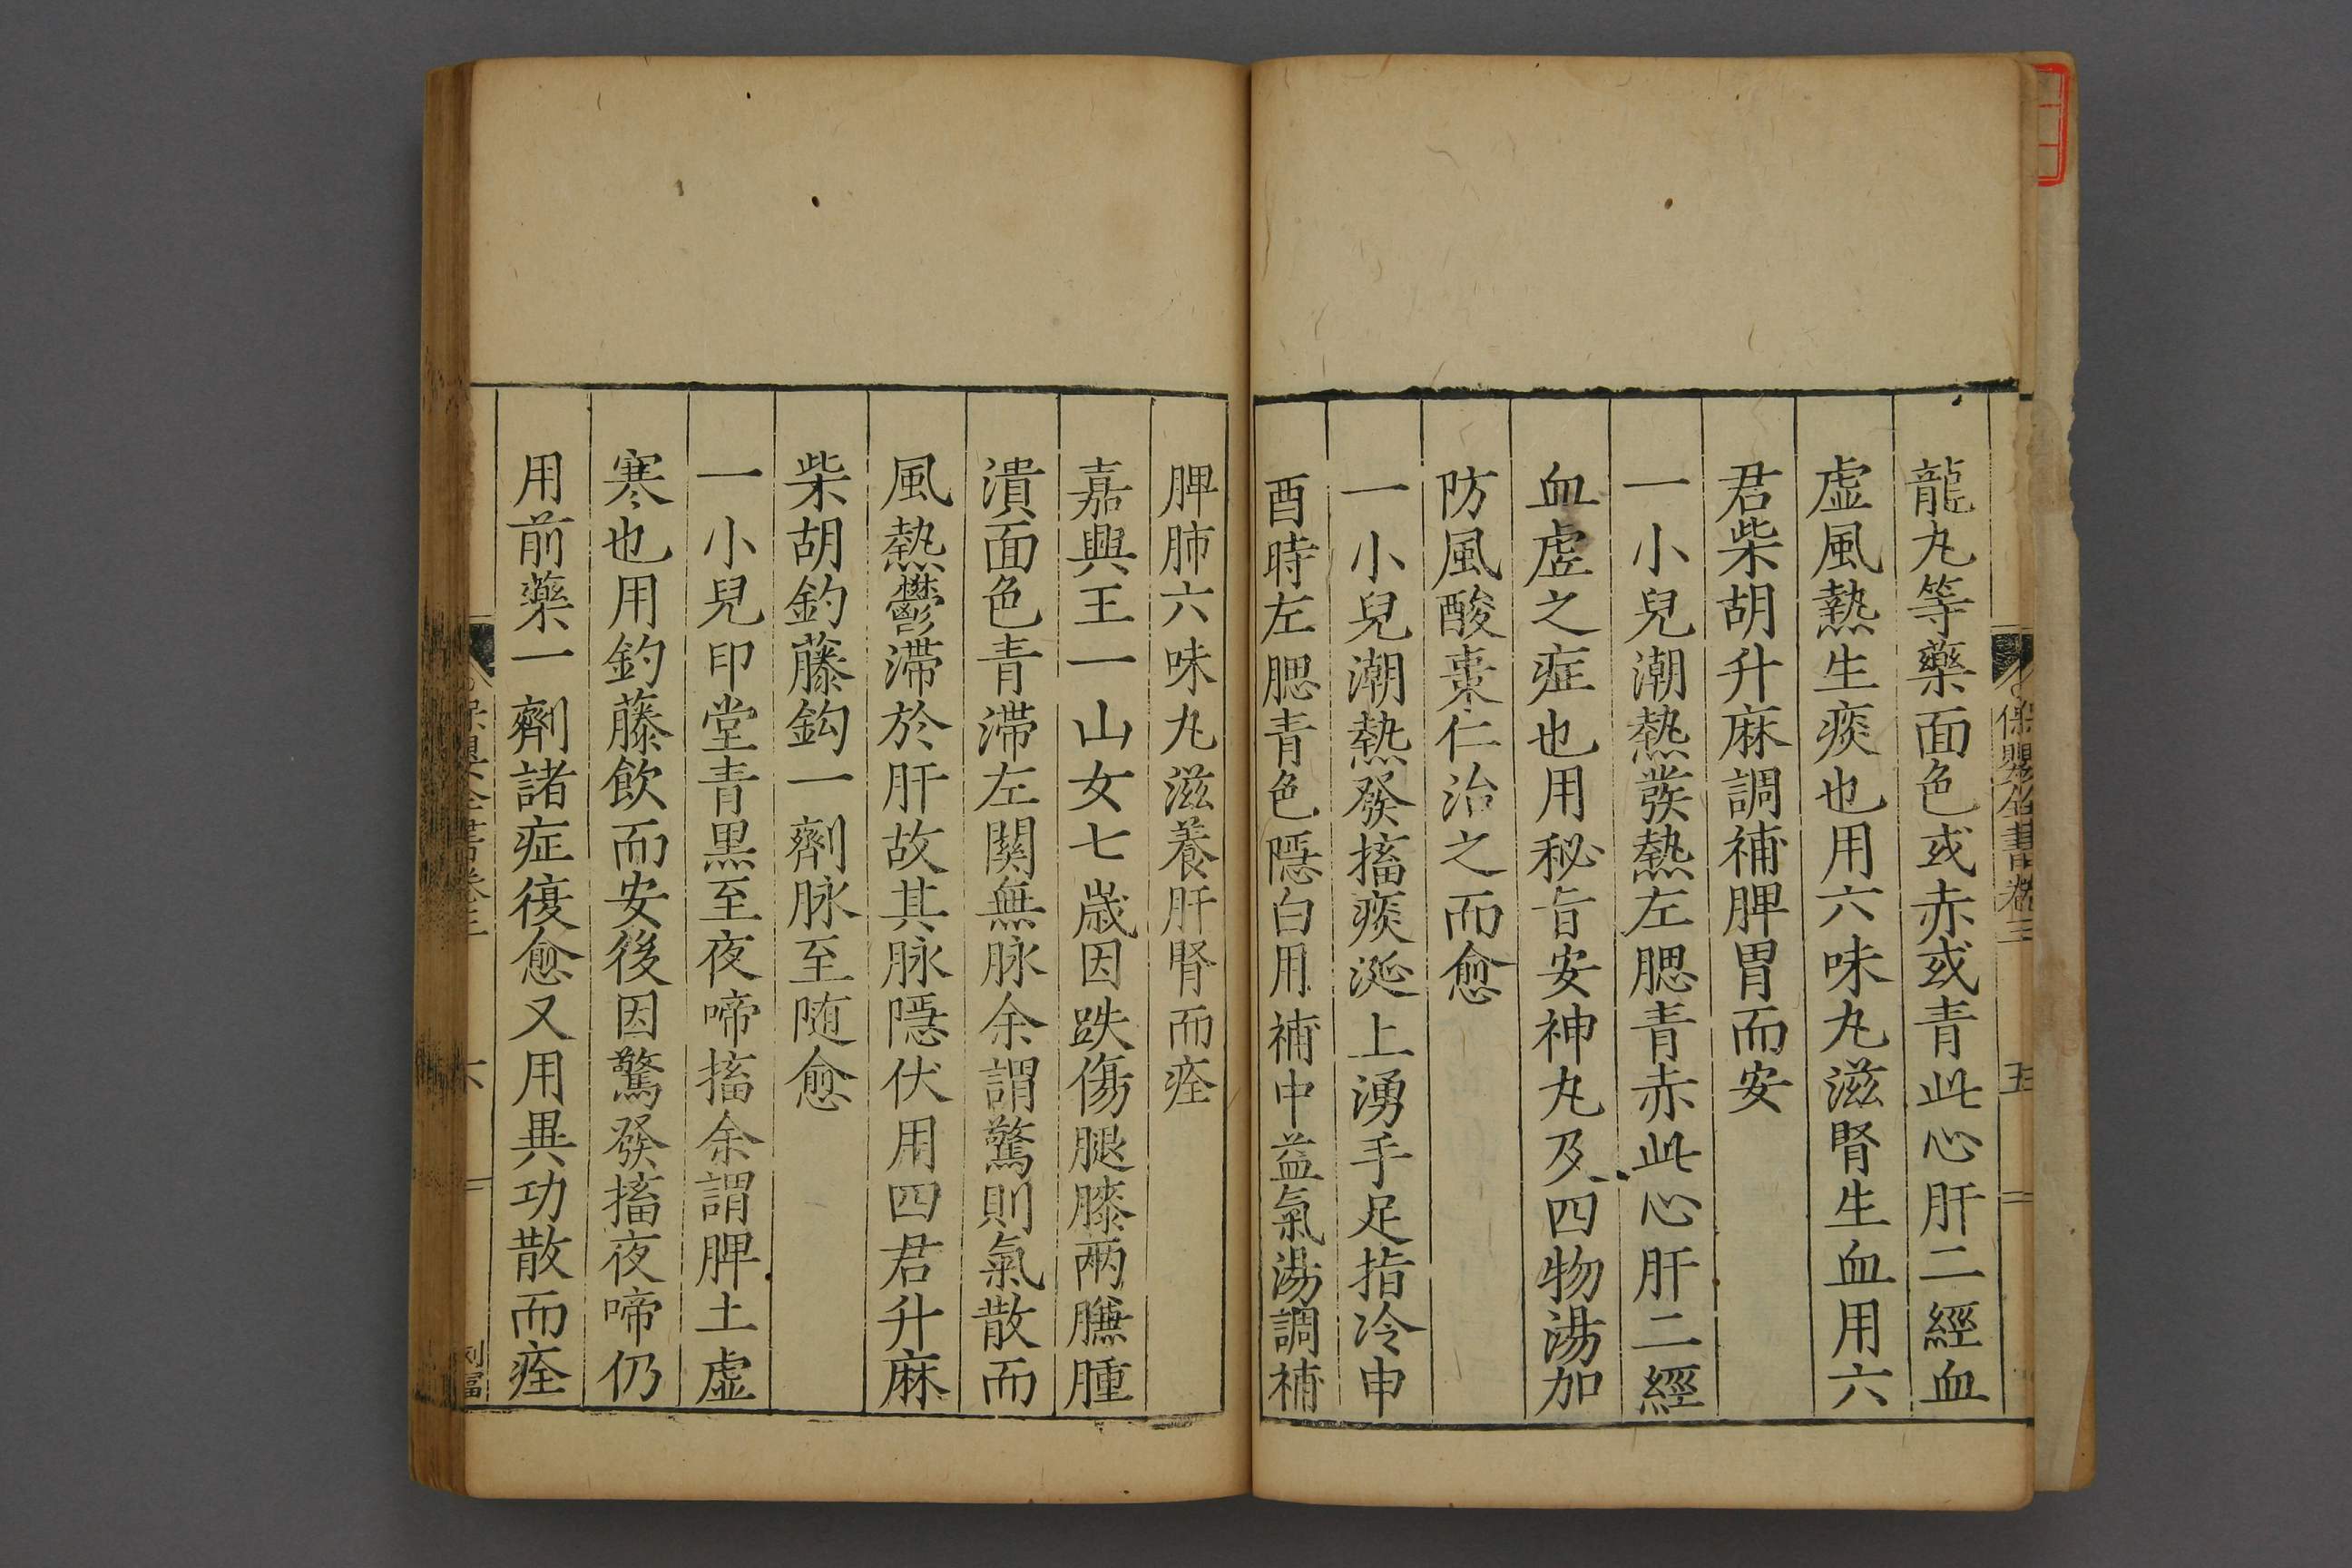 保嬰全書卷三
五
龍丸等藥面色或赤或青此心肝二經血
虛風熱生痰也用六味丸滋腎生血用六
君柴胡升麻調補脾胃而安
一小兒潮熱發熱左腮青赤此心肝二經
血虛之症也用秘旨安神丸及四物湯加
防風酸棗仁治之而愈
一小兒潮熱發搐痰涎上湧手足指冷申
酉時左腮青色隱白用補中益氣湯調補
脾肺六味丸滋養肝腎而痊
嘉興王一山女七歲因跌傷腿膝兩臁腫
潰面色青滯左關無脉余謂驚則氣散而
風熱鬱滯於肝故其脉隱伏用四君升麻
柴胡釣藤鈎一劑脉至随愈
一小兒印堂青黒至夜啼搐余謂脾土虛
寒也用釣藤飲而安後因驚發搐夜啼仍
用前藥一劑諸症復愈又用異功散而痊
保嬰全書卷三
六